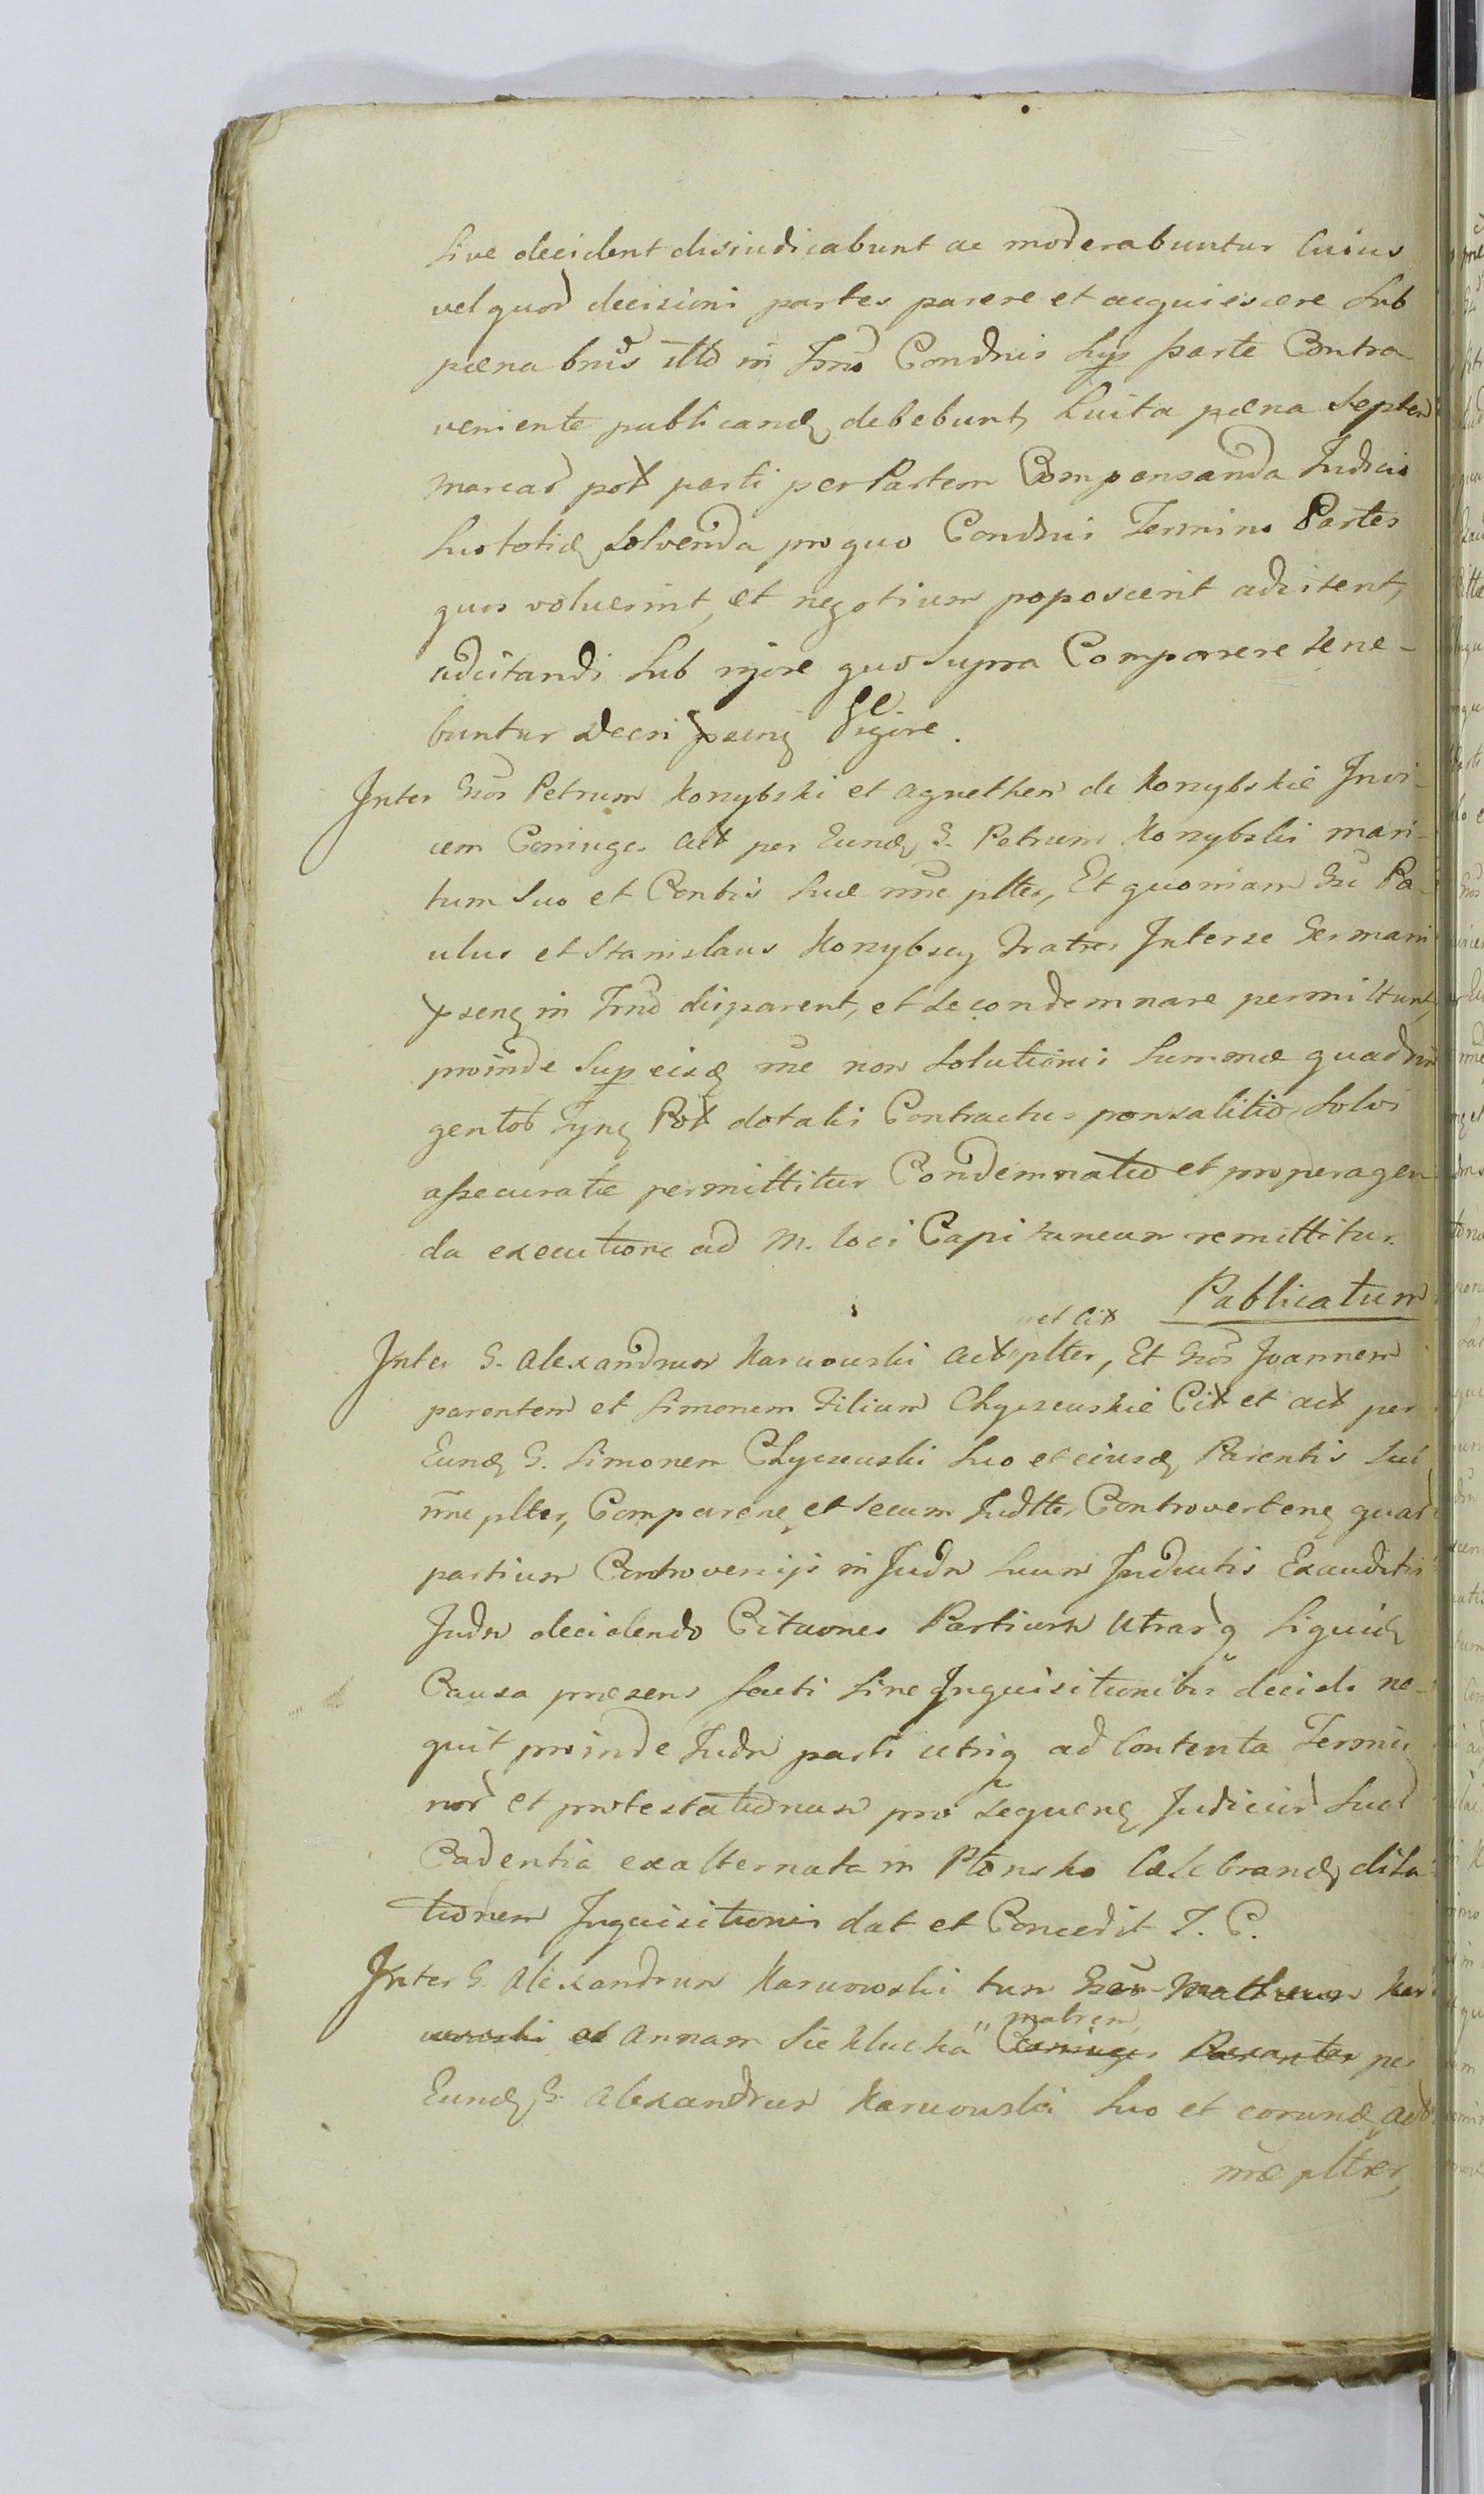 sive decident disiudicabunt ac moderabuntur Cuius
vel quor decisioni partes parere et acquiescere sub
pœna bnis itto in Trno Condnis sup parte Contra
veniente publicand debebunt, Luita pœna septem
marcar pot parti per Partem Compensanda Judicio
suo totid solvenda pro quo Condnis Termino Partes
quis voluerint, et negotium poposcerit adcitent,
adcitandi sub rigore quo supra Comparere tene-
buntur Decri pseng Vigore.
Inter Gsos Petrum Konybski et agnethen de Konybskie Invi-
cem Coniuges act per Eund G. Petrum Konybski mari-
tum suo et Contis suæ nne plter, Et quoniam Gsi Pa-
ulus et Stanislaus Konybscy Fratres Interse Germani
pseng in Trno disparent, et se condemnare permittunt,
proinde sup eisd rne non solutionis summæ quadrin
gentor Tyng Pot dotalis Contractus ponsalitio solvi
assecuratæ permittitur Condemnatio et pro peragen
da executione ad M. loci Capitaneum remittitur.
Publicatum
et Cit
Inter G. Alexandrum Karwowski act plter, Et Gsos Joannem
parentem et Simonem Filium Chyczewskie Cit et act per
Eund G. Simonem Chyczewski suo et eiusd Parentis sui
nne plter, Comparene, et secum Judtter Controverteng quar
partium Controversijs in Judm suum Inductis Exauditis
Judm decidendo Citaones Partium Utrarq Siquid
Causa præsens sciti sine Inquisitionibus decidi ne-
quit proinde Judm parti utriq ad Contenta Termi
nor et protestationum pro sequeng Judicior suor
Cadentia exalternata in Płonsko Celebrand dila
tionem Inquisitionis dat et Concedit T. C.
Inter G. Alexandrum Karwowski tum Gsos Matheum Kar
wowski et Annam Sieklucka Coniuges Parentes per
matrem
Eund G. Alexandrum Karwowski suo et eorund act
nne plter,